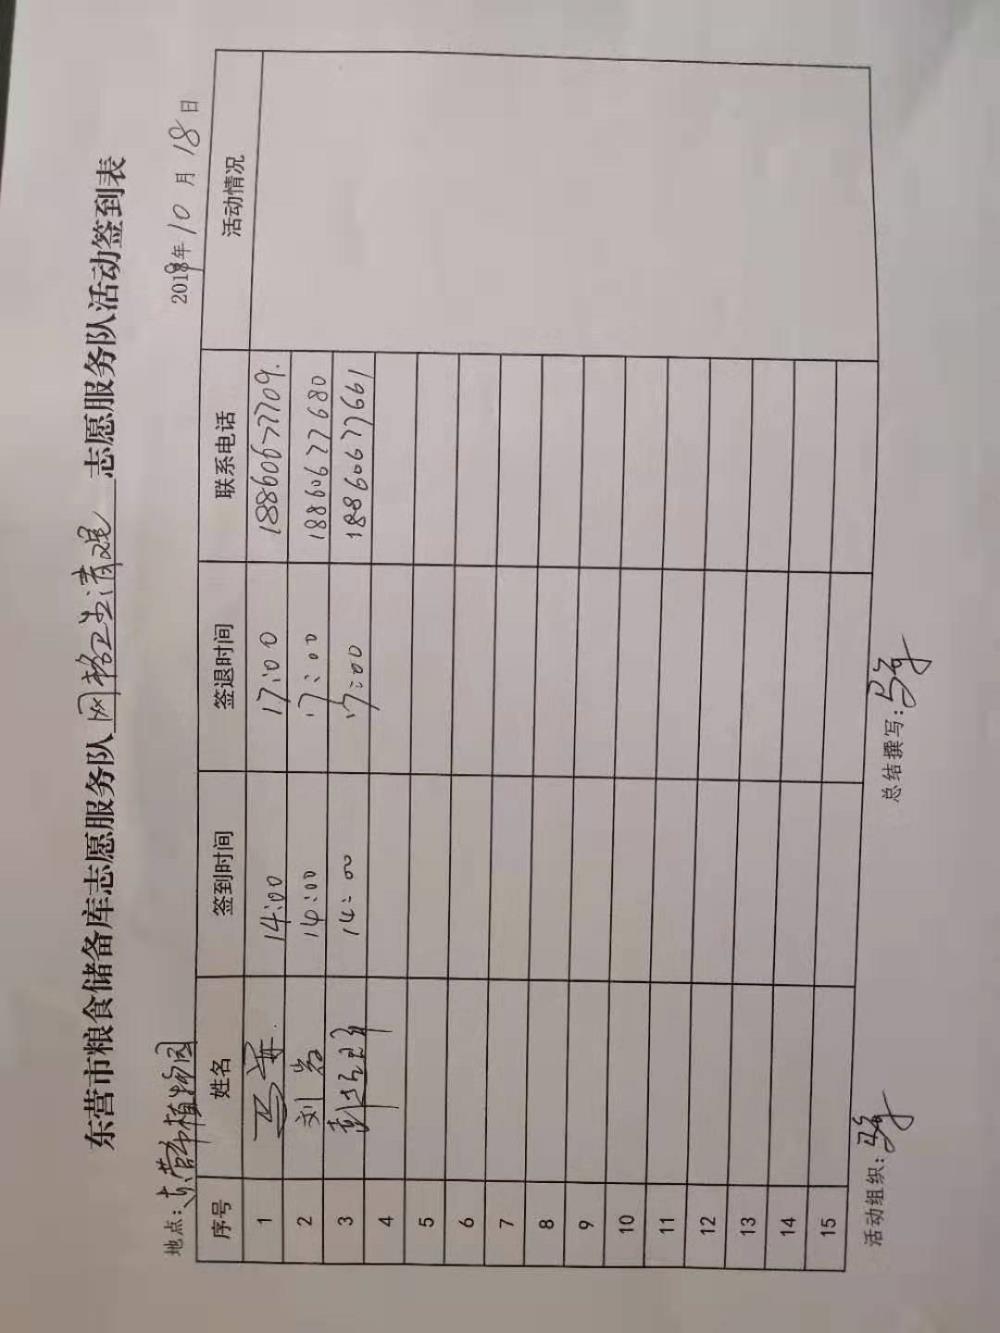 东营市粮食储备库志愿服务队网格卫生清理志愿服务队活动签到表
地点：东营市植物园 2019年10月18日
序号 姓名 签到时间 签退时间 联系电话 活动情况
1 14:00 17:00 18860677709.
2 刘岩 14:00 17:00 18860677680
3 14:00 17:00 18860677661
4
5
6
7
8
9
10
11
12
13
14
15
活动组织： 总结撰写：